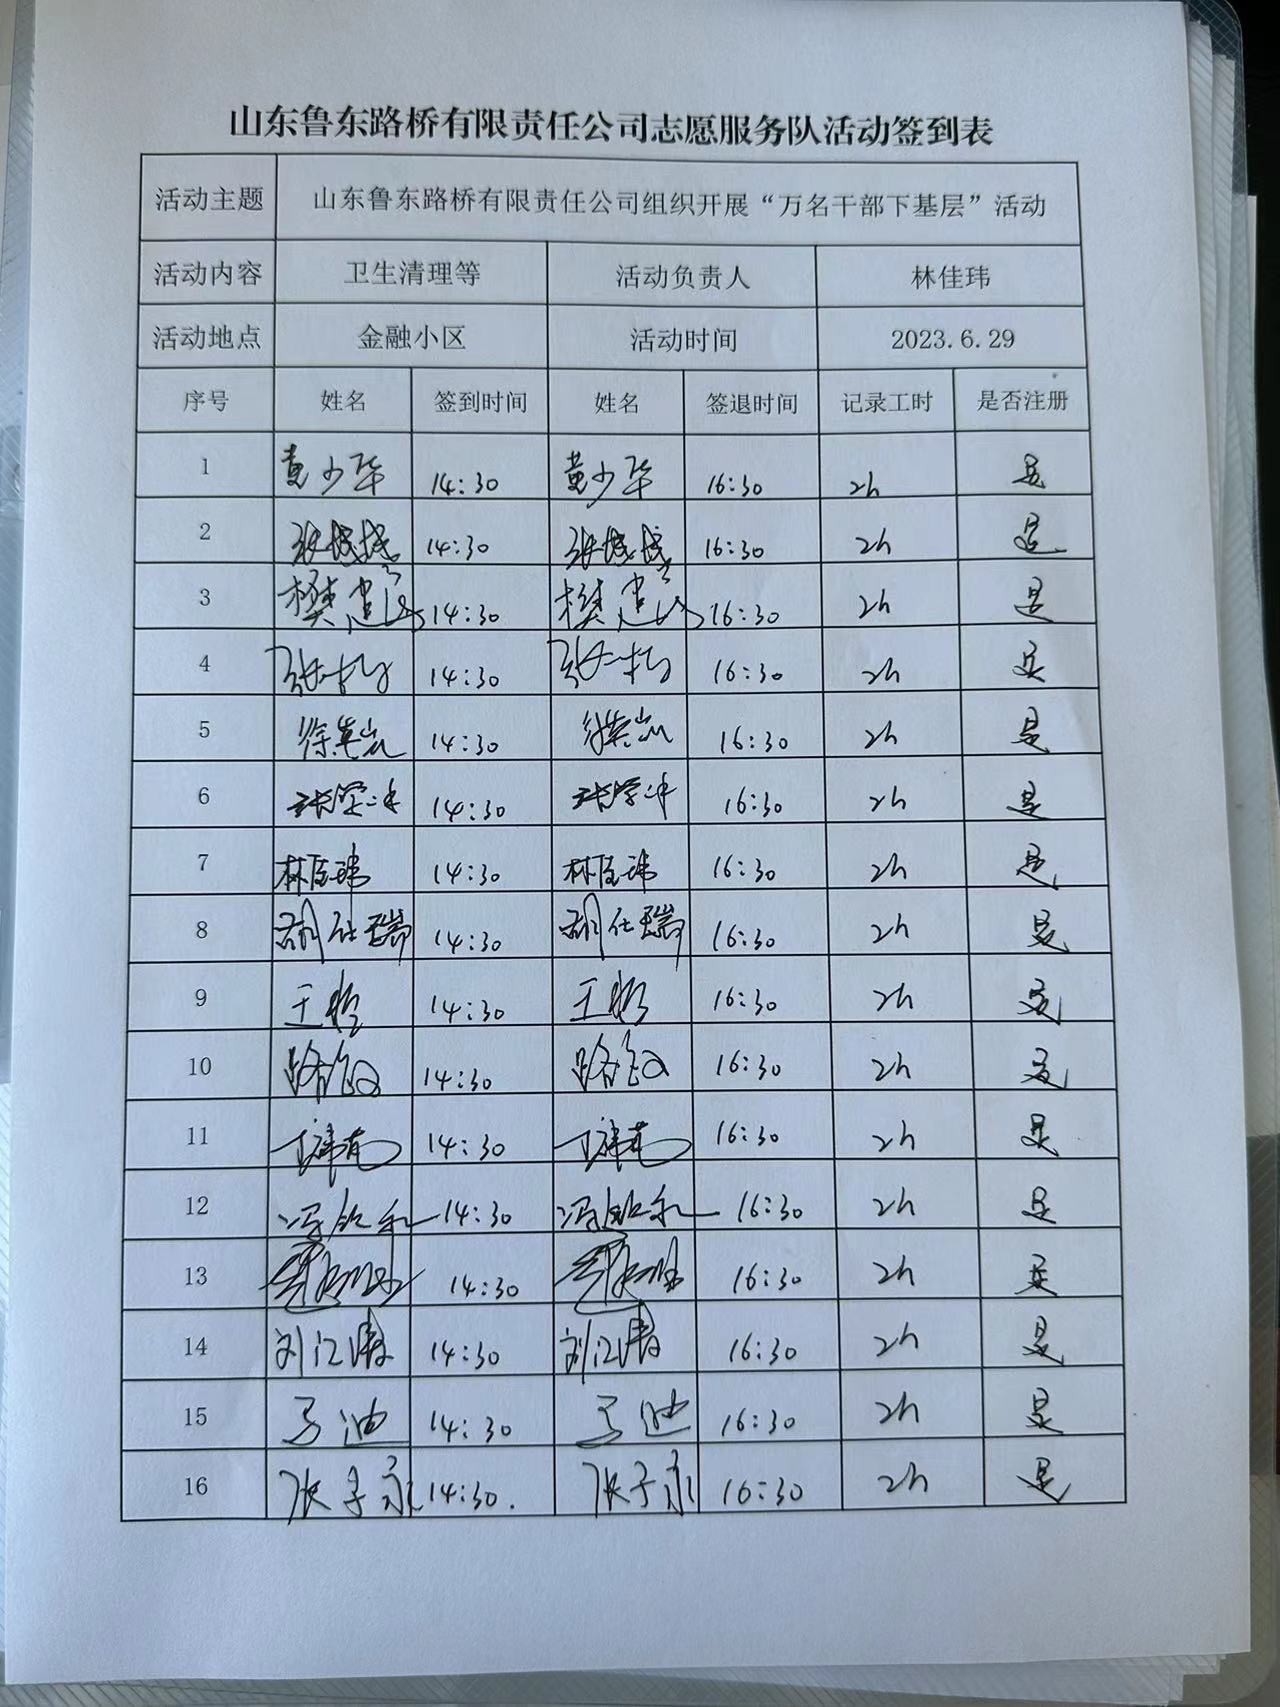 山东鲁东路桥有限责任公司志愿服务队活动签到表
活动主题 山东鲁东路桥有限责任公司组织开展“万名干部下基层”活动
活动内容 卫生清理等 活动负责人 林佳玮
活动地点 金融小区 活动时间 2023.6.29
序号 姓名 签到时间 姓名 签退时间 记录工时 是否注册
1 黄少华 14:30 黄少华 16:30 2h 是
2 14:30 16:30 2h 是
3 14:30 16:30 2h 是
4 14:30 16:30 2h 是
5 徐英岚 14:30 徐英岚 16:30 2h 是
6 14:30 16:30 2h 是
7 林佳玮 14:30 林佳玮 16:30 2h 是
8 胡仕瑞 14:30 胡仕瑞 16:30 2h 是
9 14:30 16:30 2h 是
10 14:30 16:30 2h 是
11 14:30 16:30 2h 是
12 14:30 16:30 2h 是
13 14:30 16:30 2h 是
14 刘江涛 14:30 刘江涛 16:30 2h 是
15 马迪 14:30 马迪 16:30 2h 是
16 张子永 14:30. 张子永 16:30 2h 是